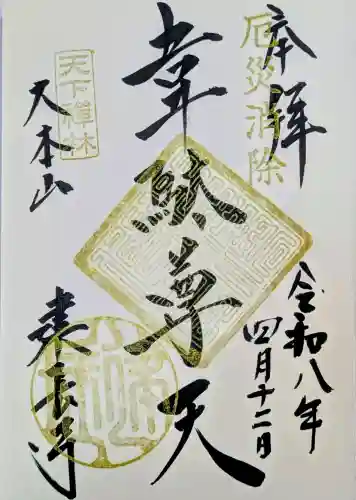 奉拝
厄災消除
韋駄尊天
天下禅林
大本山
建長寺
令和八年
四月十二日